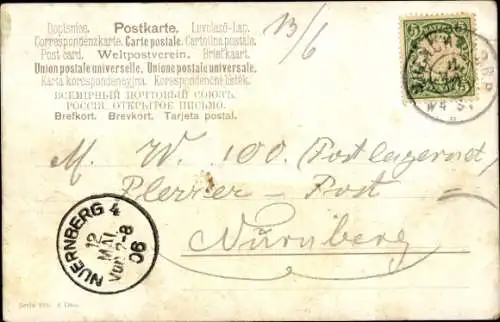 Dopisnice. Postkarte. Levelező-Lap.
Correspondenzkarte. Carte postale. Cartolina postale.
Post card. Weltpostverein. Briefkaart.
Union postale universelle. Unione postale universale.
Karta korespondencyjna. Korespondenční lístek.
ВСЕМІРНЫЙ ПОЧТОВЫЙ СОЮЗЪ.
РОССІЯ. ОТКРЫТОЕ ПИСЬМО.
Brefkort. Brevkort. Tarjeta postal.
5
BAYERN
M. W. 100. (Postlagernd)
Plerrer - Post
Nürnberg
NUERNBERG 4
12
MAI
VOR 7-8
06